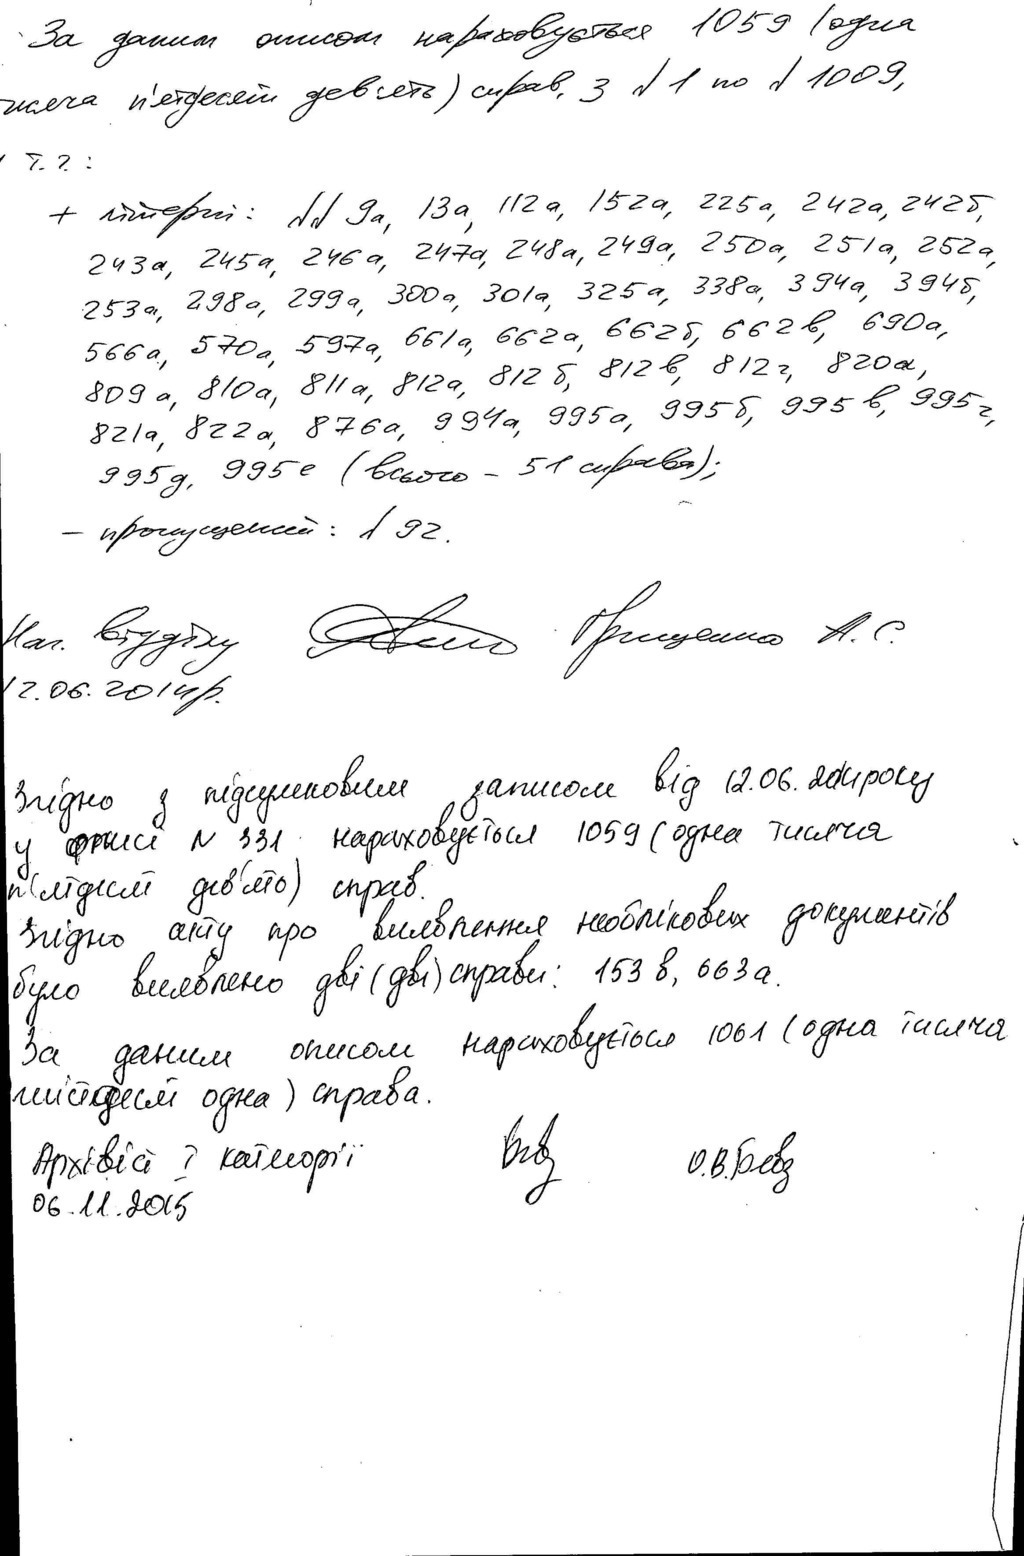 За даним описом нараховується 1059 (одна
тисяча п'ятдесят дев'ять) справ, з № 1 по № 1009,
в т. ч.:
+ літерні: №№ 9а, 13а, 112а, 152а, 225а, 242а, 242б,
243а, 245а, 246а, 247а, 248а, 249а, 250а, 251а, 252а,
253а, 298а, 299а, 300а, 301а, 325а, 338а, 394а, 394б,
566а, 570а, 597а, 661а, 662а, 662б, 662в, 690а,
809а, 810а, 811а, 812а, 812б, 812в, 812г, 820а,
821а, 822а, 876а, 994а, 995а, 995б, 995в, 995г,
995д, 995е (всього – 51 справа);
– пропущений: № 92.
Нач. відділу Грищенко А. С.
12.06.2014р.
Згідно з підсумковим записом від 12.06.2014року
у описі № 331 нараховується 1059 (одна тисяча
п'ятдесят дев'ять) справ.
Згідно акту про виявлення необлікових документів
було виявлено дві (дві) справи: 153в, 663а.
За даним описом нараховується 1061 (одна тисяча
шістдесят одна) справа.
Архівіст І категорії О.В.
06.11.2015